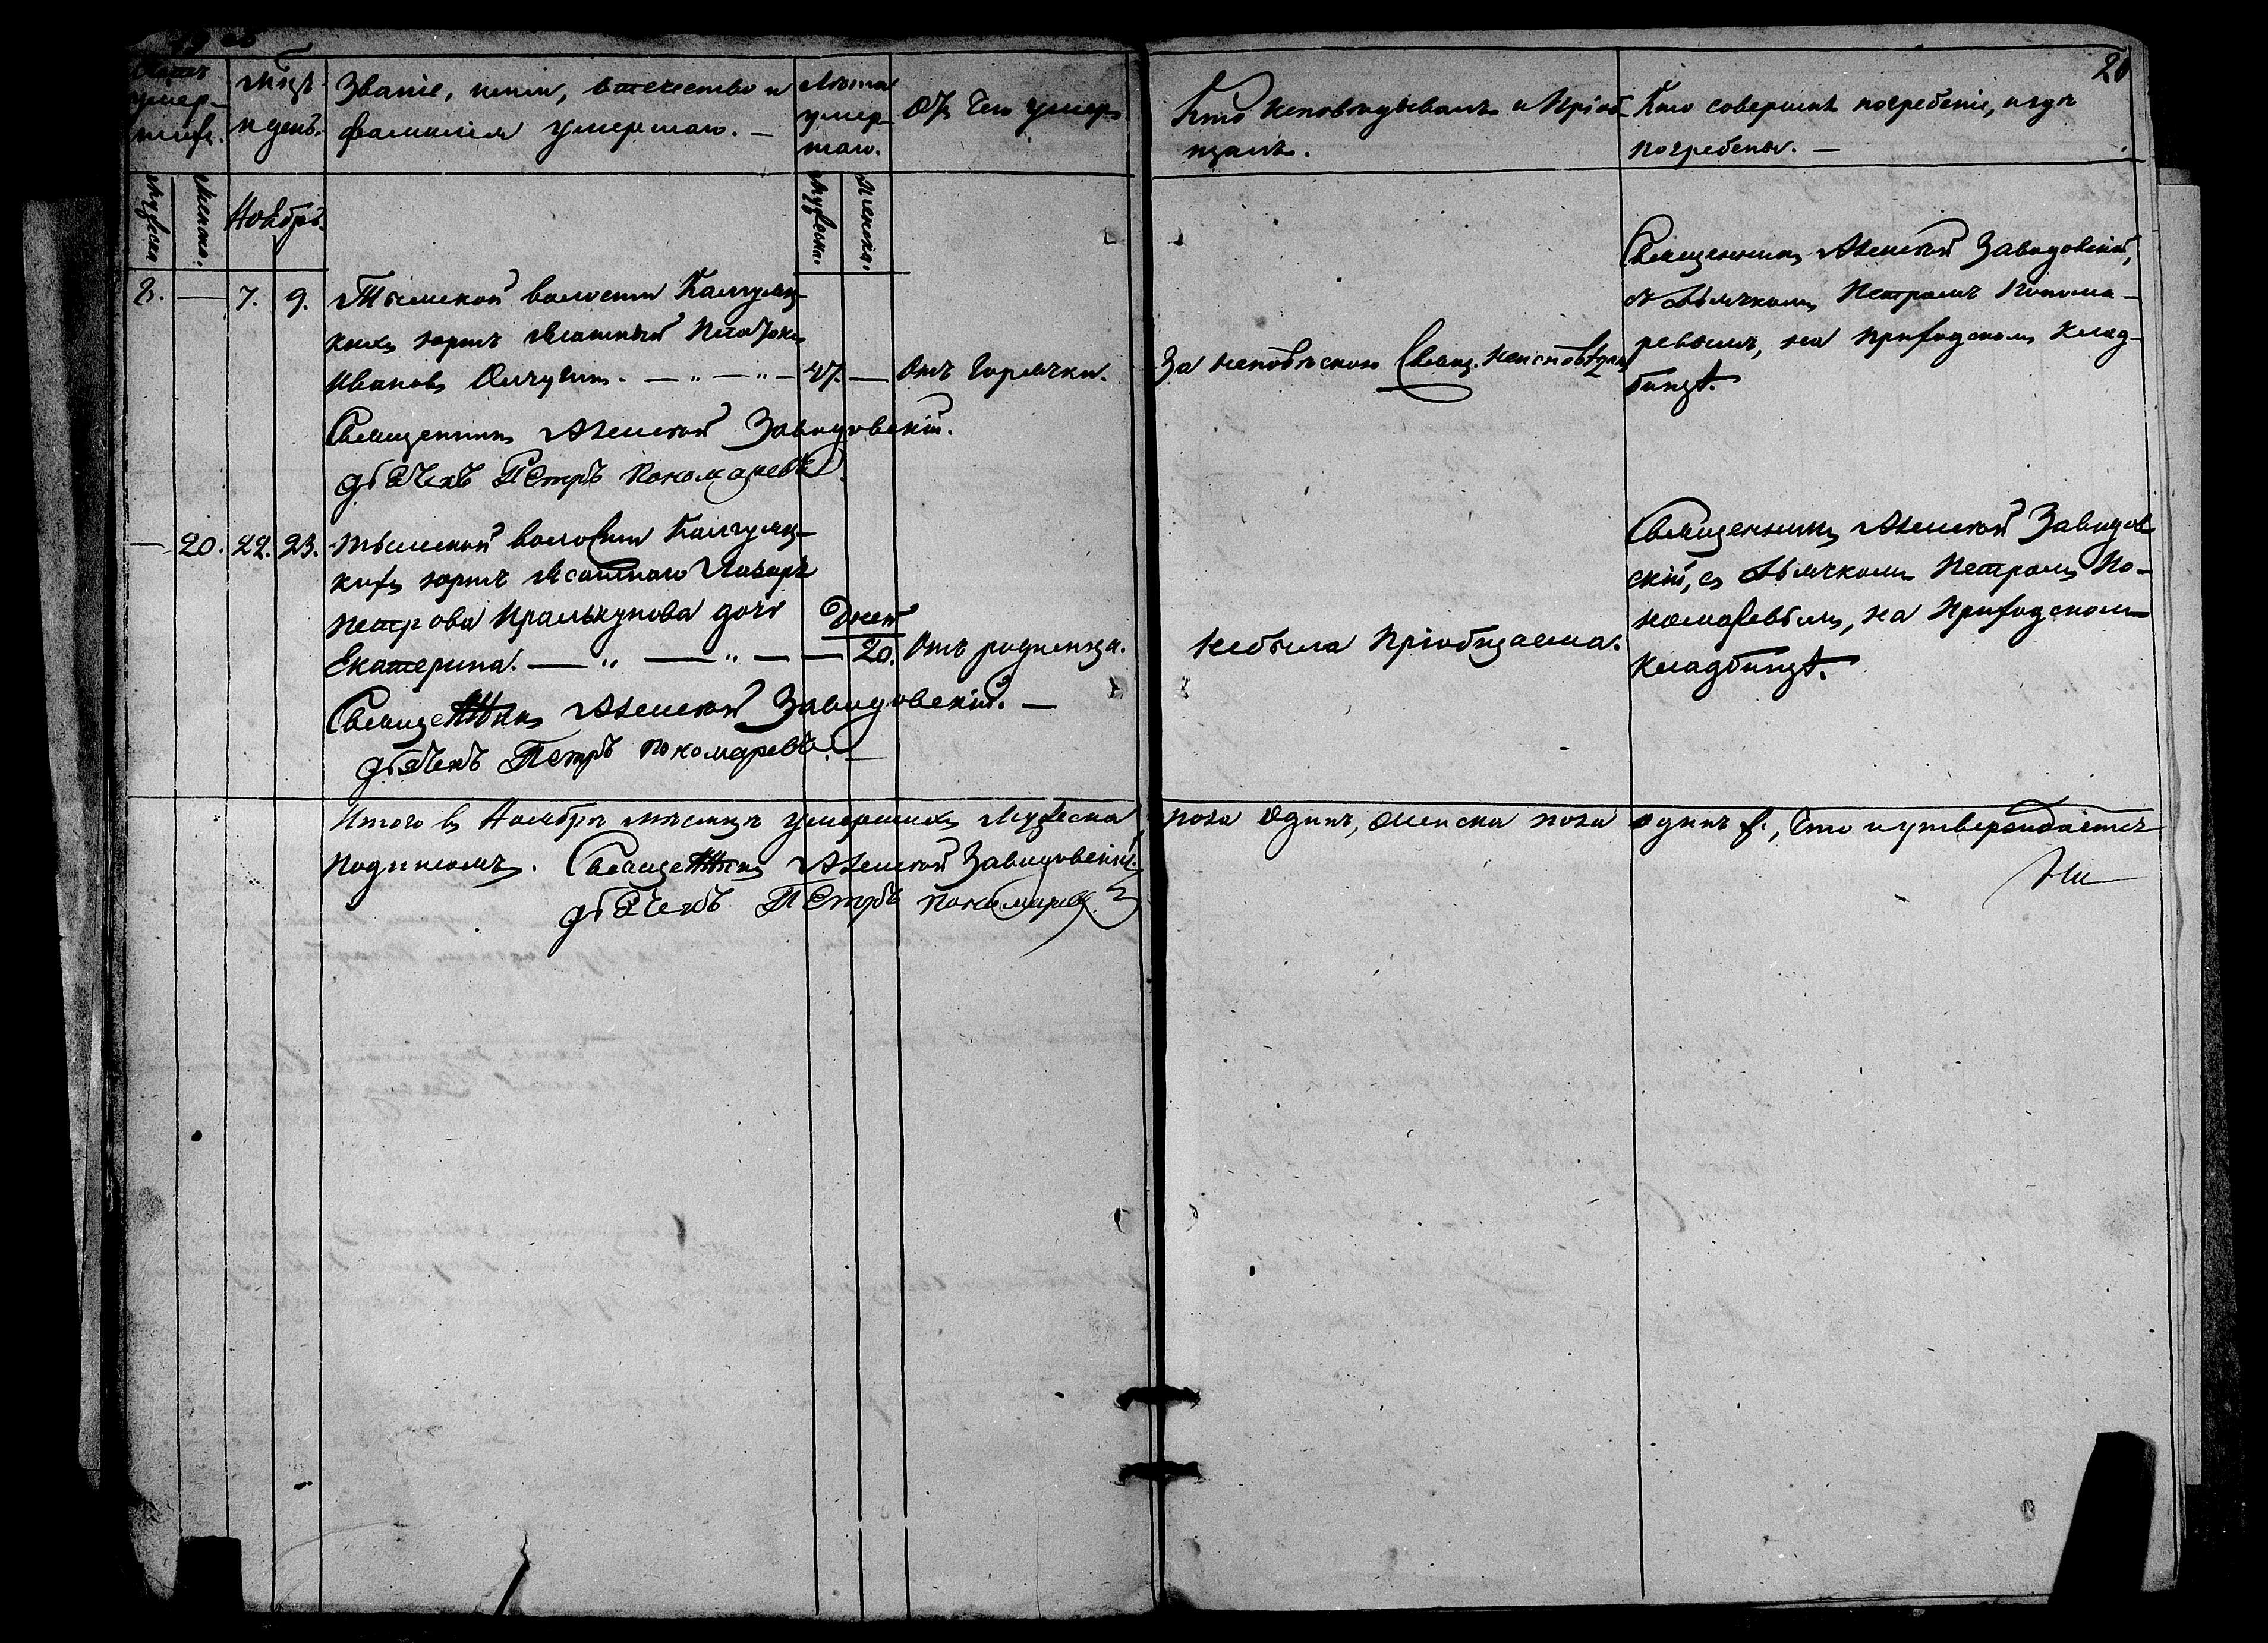 19 об
20
Счетъ умер-
шихъ.
Мцъ
и день.
Званіе, имя, отечество и
фамилия умершаго. —
Лѣта
умер
шаго.
Отъ чего умеръ
Кто исповѣдывалъ и пріоб
щалъ.
Кто совершилъ погребеніе, и гдѣ
погребены. —
Мужеска
Женска.
Ноябрь.
Мужеска.
Женска.
— 7. 9. Тымской волости
юртъ ясашный
Ивановъ — „ — „ — 47. — Отъ горячки.
За неповѣсткою Свящ. неисповѣдан
Священникъ Алексѣй Заводовскій,
съ Дьячкомъ Петромъ Понома-
ревымъ, на приходскомъ клад-
бищѣ.
Священникъ Алексѣй Заводовскій.
Дьячекъ Петръ Пономаревъ.
— 20. 22. 23. Тымской волости
кихъ юртъ ясашнаго Лазаря
Петрова дочь
Екатерина. — „ — „ — — Дней 20. Отъ родимца.
Небыла пріобщаема.
Священникъ Алексѣй Заводов
скій, съ Дьячкомъ Петромъ По-
номаревымъ, на приходскомъ
кладбищѣ.
Священникъ Алексѣй Заводовскій. —
Дьячекъ Петръ Пономаревъ.
Итого въ Ноябрѣ мѣсяцѣ умершихъ мужеска пола одинъ, женска пола одинъ ж., что и утверждается
подписомъ. Священникъ Алексѣй Заводовскій.
Дьячекъ Петръ Пономаревъ